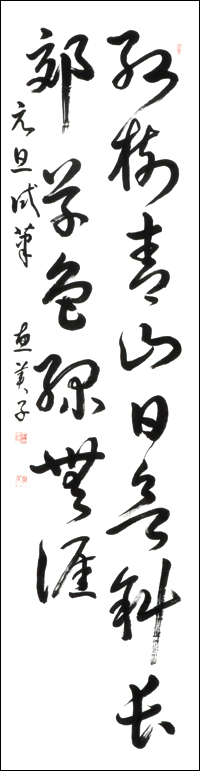 紅樹青山日欲斜長
郊草色緑無涯
元旦試筆 恵美子